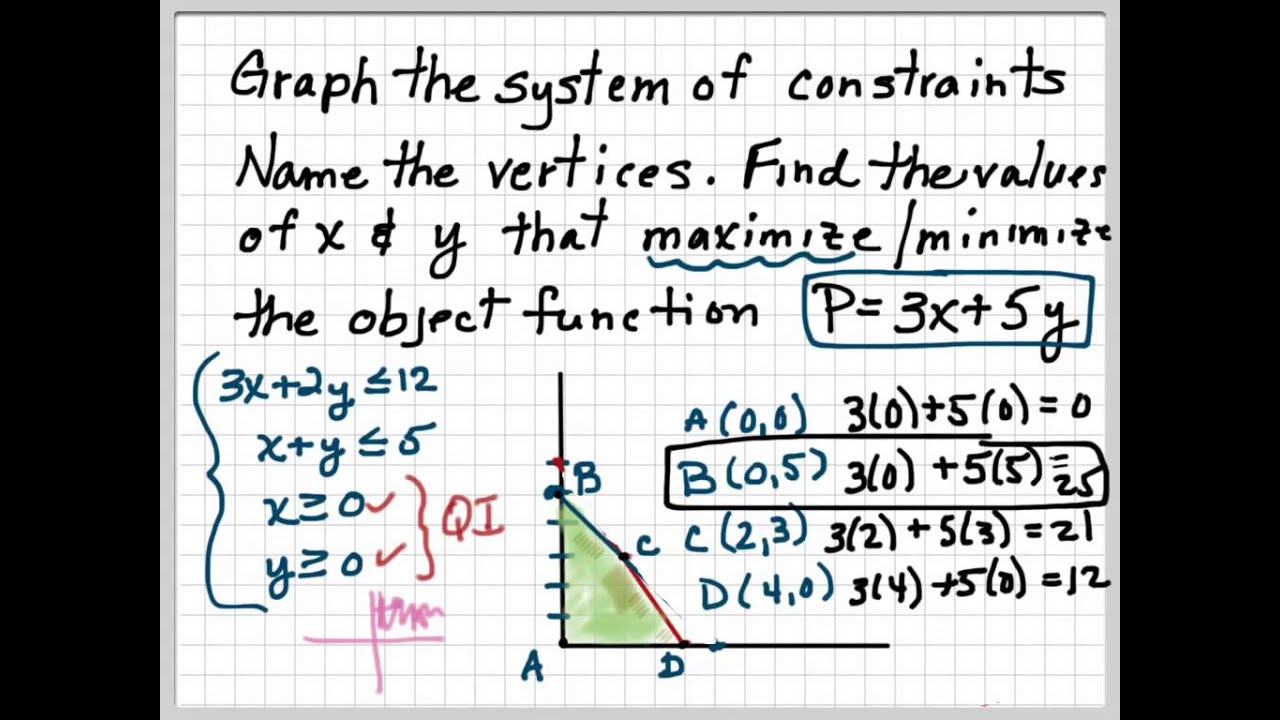 Graph the system of constraints
Name the vertices. Find the values
of x & y that maximize/minimize
the object function P=3x+5y
3x+2y≤12
x+y≤5
x≥0✓
y≥0✓
QI
A(0,0) 3(0)+5(0)=0
B(0,5) 3(0)+5(5)=25
C(2,3) 3(2)+5(3)=21
D(4,0) 3(4)+5(0)=12
B
C
A
D